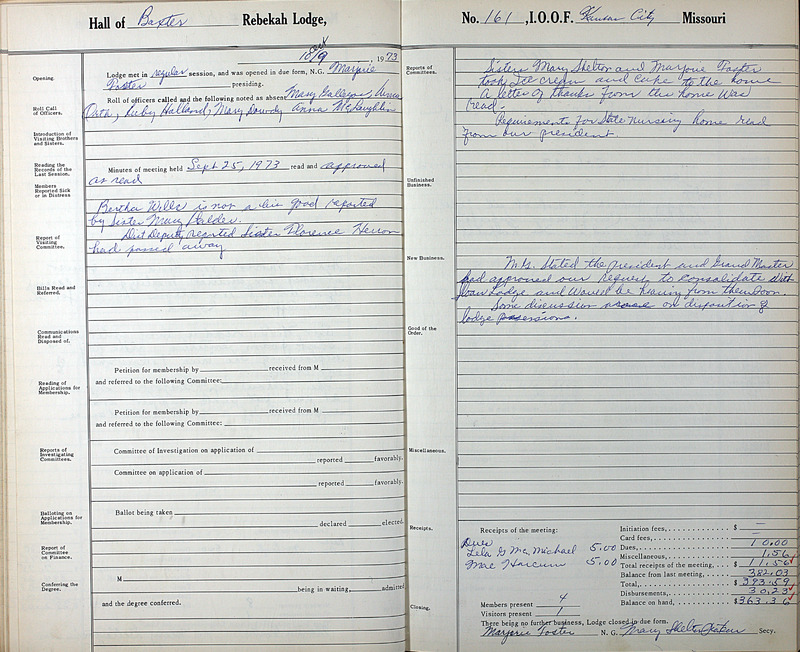 Hall of Baxter Rebekah Lodge,
Oct
10/9, 1973
Opening.
Lodge met in regular session, and was opened in due form, N.G. Marjorie
Foster presiding.
Roll Call
of Officers.
Roll of officers called and the following noted as absent Mary
Orth, Ruby Halland, Mary Anna McLaughlin
Introduction of
Visiting Brothers
and Sisters.
Reading the
Records of the
Last Session.
Minutes of meeting held Sept 25, 1973 read and approved
as read
Members
Reported Sick
or in Distress
Bertha Wills is not a bit good reported
by Sister Mary
Report of
Visiting
Committee.
Dist Deputy reported Sister Florence Herron
had passed away
Bills Read and
Referred.
Communications
Read and
Disposed of.
Petition for membership by received from M
and referred to the following Committee:
Reading of
Applications for
Membership.
Petition for membership by received from M
and referred to the following Committee:
Reports of
Investigating
Committees.
Committee of Investigation on application of
reported favorably.
Committee on application of
reported favorably.
Balloting on
Applications for
Membership.
Ballot being taken
declared elected.
Report of
Committee
on Finance.
Conferring the
Degree.
M
being in waiting, admitted
and the degree conferred.
No. 161, I.O.O.F. Kansas City Missouri
Reports of
Committees.
Sisters Mary Shelton and Marjorie Foster
took Ice cream and Cake to the home
A letter of thanks from the home was
read.
Requirements for State Nursing home read
from our president.
Unfinished
Business.
New Business.
N.G. Stated the president and Grand Master
had approved our request to consolidate with
Lodge and would be hearing from them soon.
Some discussion on disposition of
lodge possessions.
Good of the
Order.
Miscellaneous.
Receipts.
Receipts of the meeting:
Dues
Lela G McMichael 5.00
Mae Harcum 5.00
Initiation fees, $ —
Card fees, —
Dues, 10.00
Miscellaneous, 1.56
Total receipts of the meeting, $ 11.56
Balance from last meeting, 382.03
Total, $ 393.59
Disbursements, 30.23
Balance on hand, $363.36
Members present 4
Visitors present 1
Closing.
There being no further business, Lodge closed in due form.
Marjorie Foster N. G. Mary Shelton Secy.